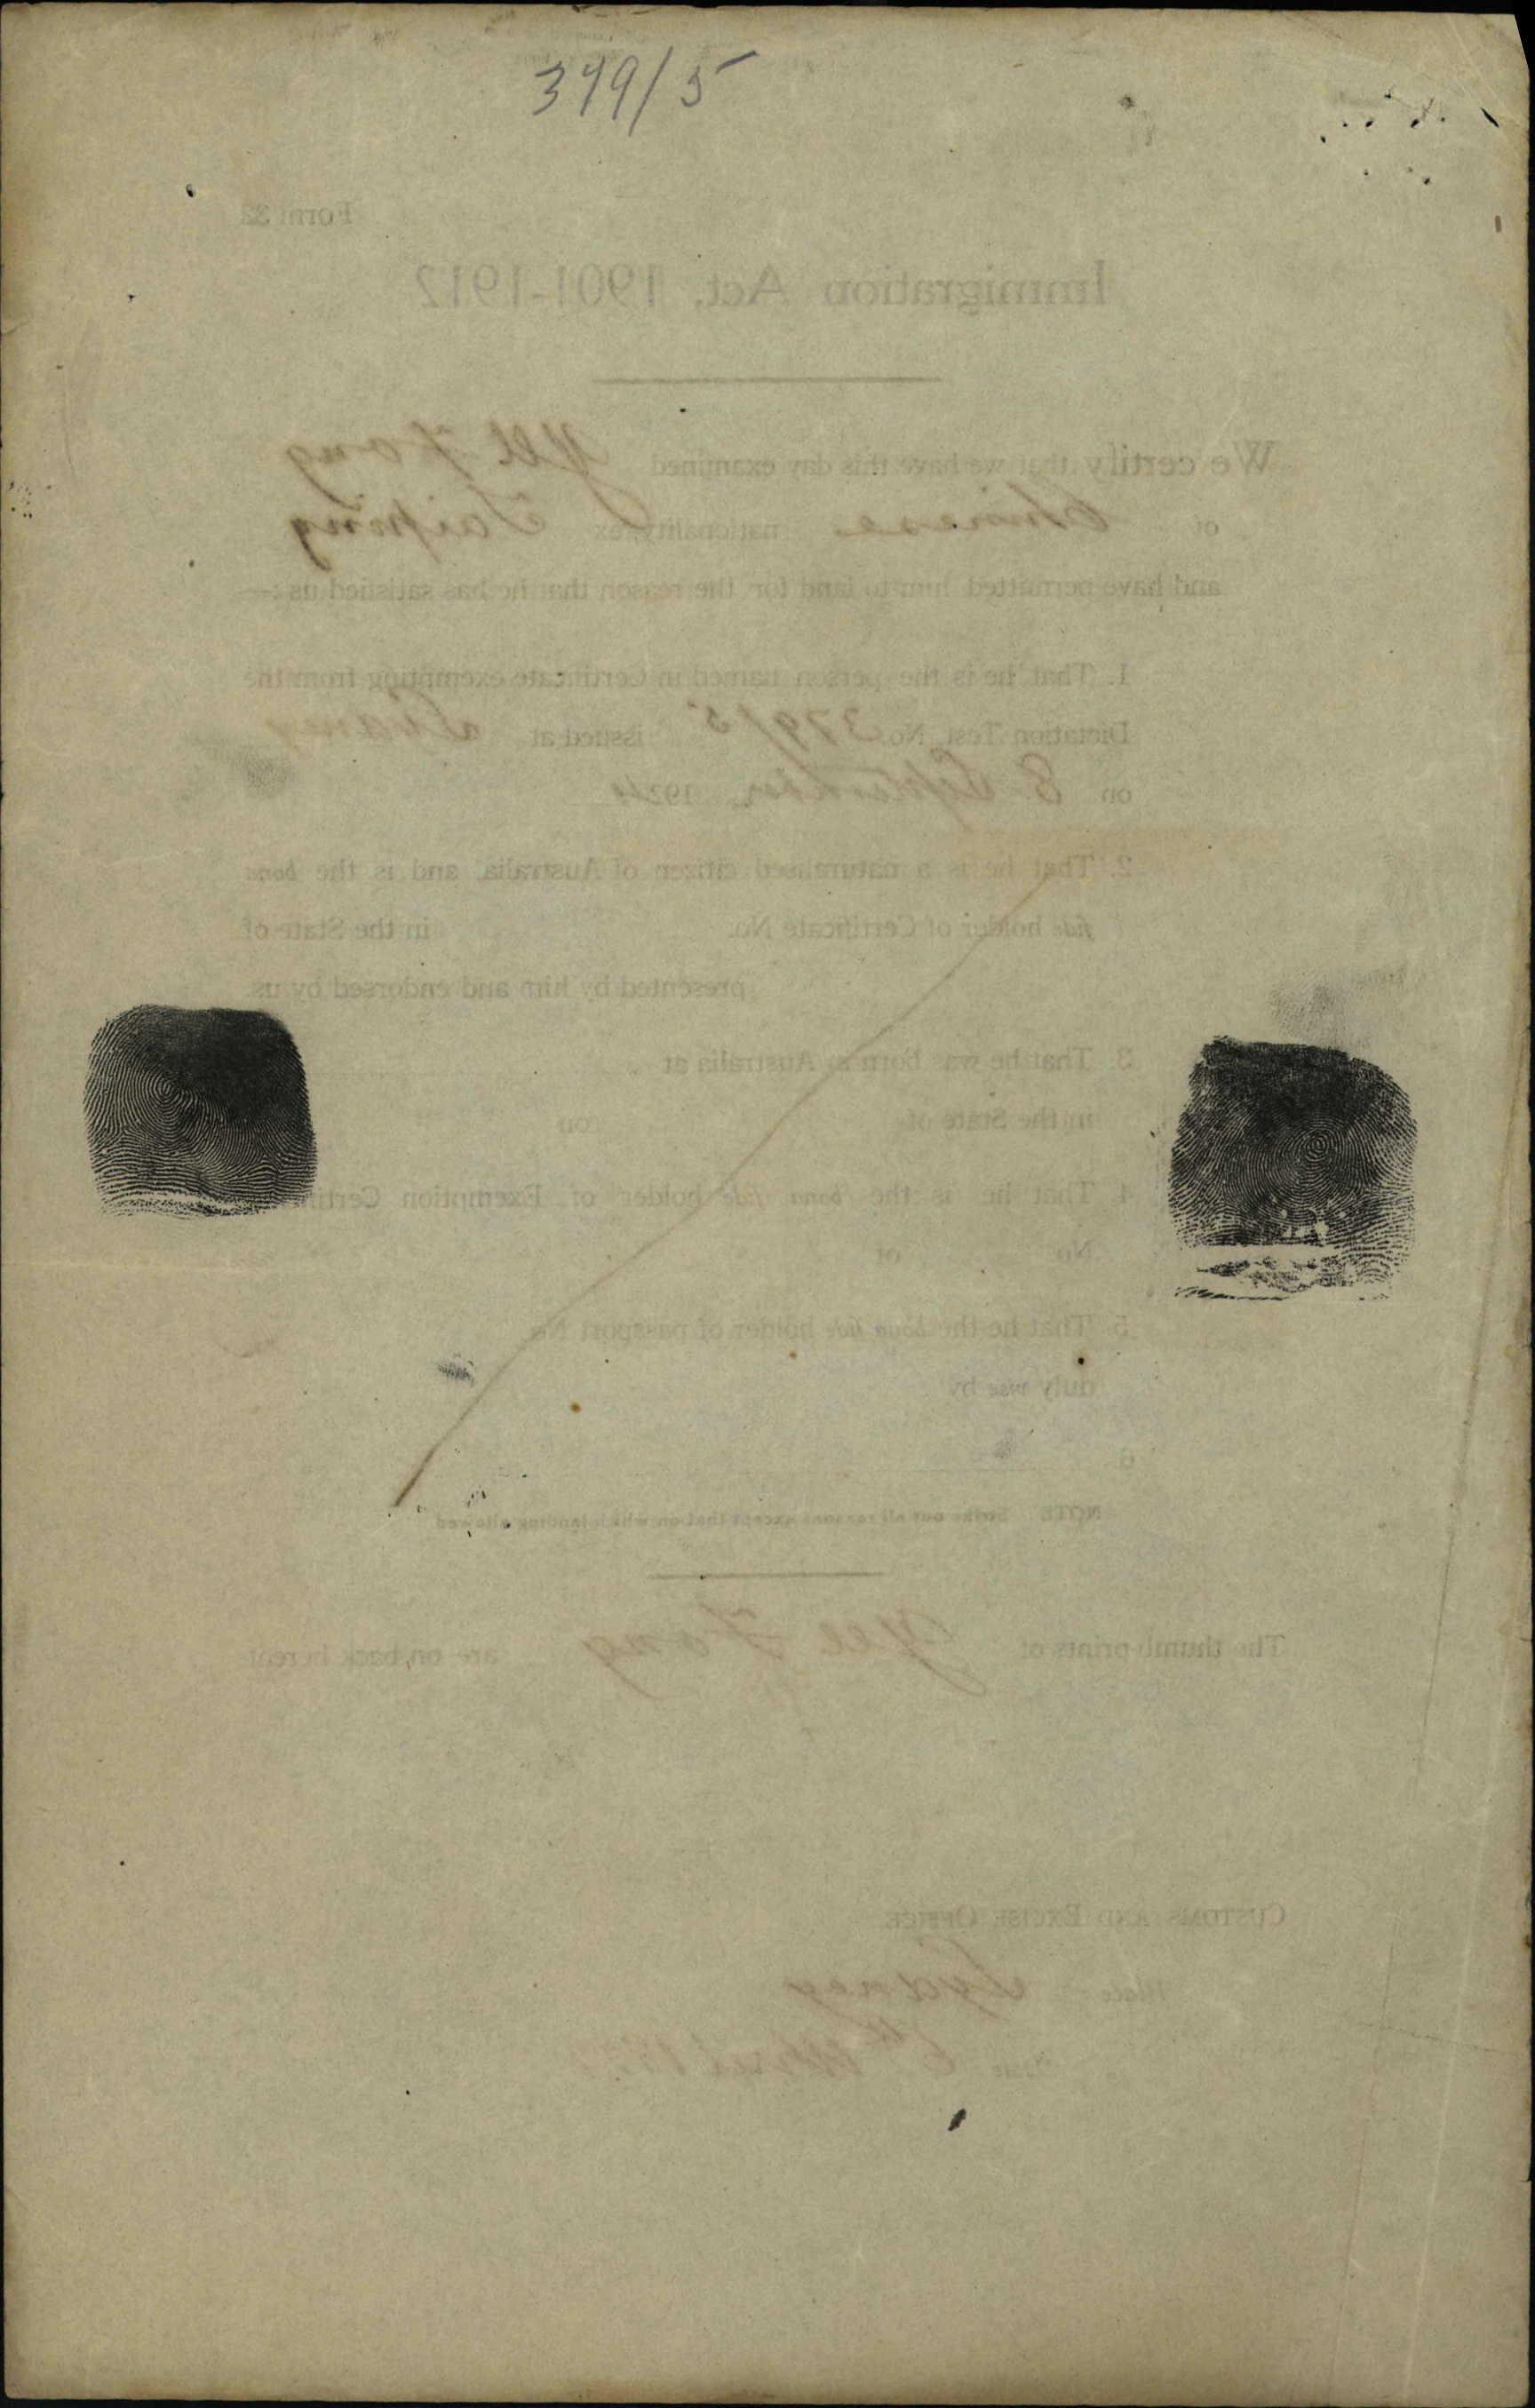 379/5
Form 32
Immigration Act. 1901-1912
We certify that we have this day examined Yee Fong
of Chinese nationality, ex Taiping
and have permitted him to land for the reason that he has satisfied us :—
1. That he is the person named in Certificate exempting from the
Dictation Test No. 379/5 issued at Sydney
on 8 September 1924
2. That he is a naturalised citizen of Australia, and is the bona
fide holder of Certificate No. in the State of
presented by him and endorsed by us.
3. That he was born in Australia at
in the State of on
4. That he is the bona fide holder of Exemption
No. of
5. That he the bona fide holder of passport No.
duly vise by
6
NOTE Strike out all reasons except that on which landing allowed
The thumb-prints of Yee Fong are on back hereof
CUSTOMS AND EXCISE OFFICE
Place Sydney
6th April